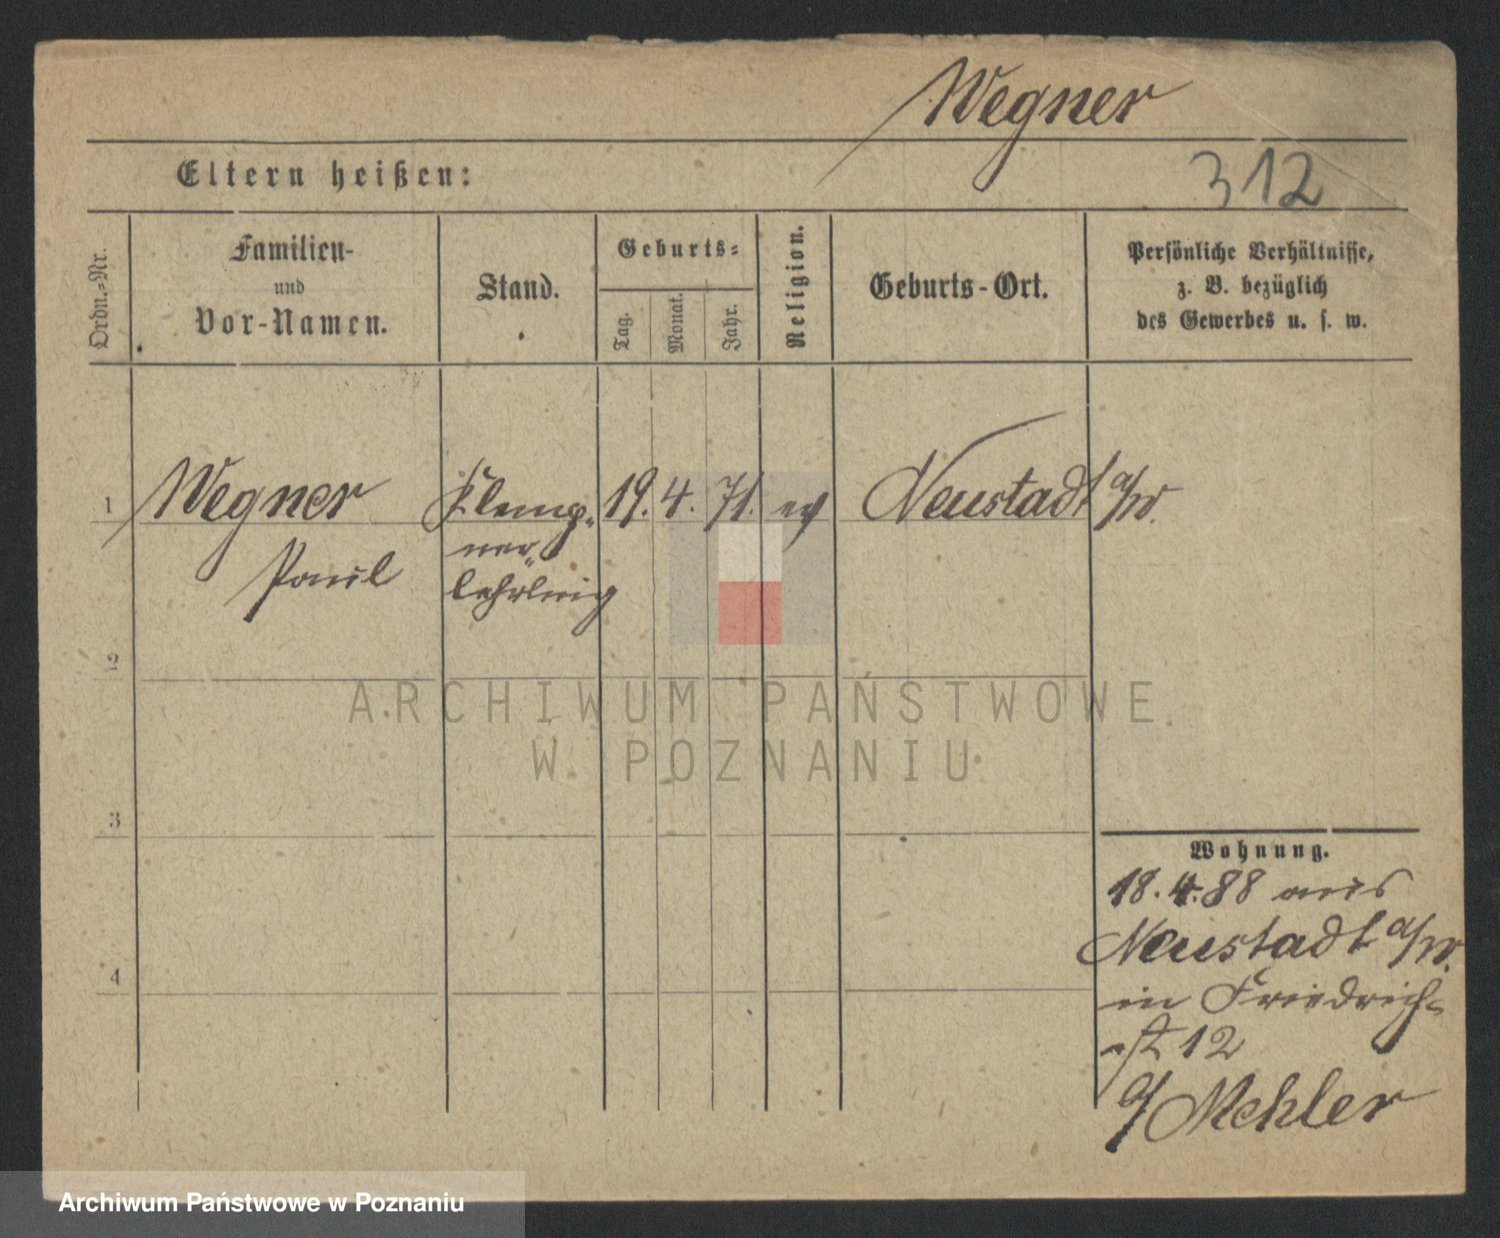 Wegner
312
Eltern heißen:
Ordn.-Nr.
Familien-
und
Vor-Namen.
Stand.
Geburts-
Tag.
Monat.
Jahr.
Religion.
Geburts-Ort.
Persönliche Verhältnisse,
z. B. bezüglich
des Gewerbes u. s. w.
1 Wegner Klemp- 19. 4. 71. ev Neustadt a/W.
Paul ner-
lehrling
2
ARCHIWUM PAŃSTWOWE
W POZNANIU
3
Wohnung.
18. 4. 88 aus
Neustadt a/W.
in Friedrich-
st 12
4
b/ Mehler
Archiwum Państwowe w Poznaniu